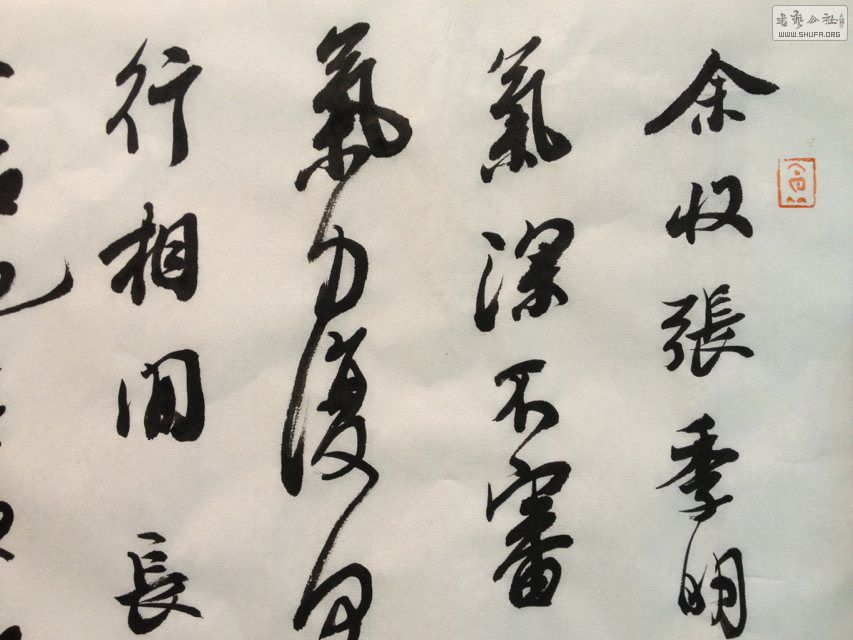 書藝公社
WWW.SHUFA.ORG
余收張季明
氣深不審
氣力復何
行相間長